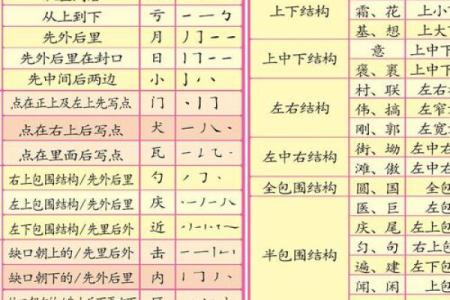 从上到下 亏 一 一 ㇉
先外后里 月 丿 ㇆ 一 一
先外后里在封口 日 丨 ㇆ 一 一
先中间后两边 小 亅 丿 丶
点在正上及左上先写点 门 丶 丨 ㇆
点在右上后写点 犬 一 丿 ㇏ 丶
点在里面后写点 瓦
右上包围结构/先外后里 勺
左上包围结构/先外后里 庆
左下包围结构/先里后外 近
缺口朝上的/先里后外 击
缺口朝下的/先外后里 内
上下结构 霜、花 上小
基、想 上大
上中下结构 意 上中下
褒、裹 上中下
左右结构 村、联 左右
伟、搞 左窄
刚、郭 左宽
左中右结构 街、坳 左中右
滩、傲 左中右
全包围结构 圆、国 全包
半包围结构 医、巨 左包
庆、尾 左上
匀、句 右上包
遍、建 左下
闻、闲 上包